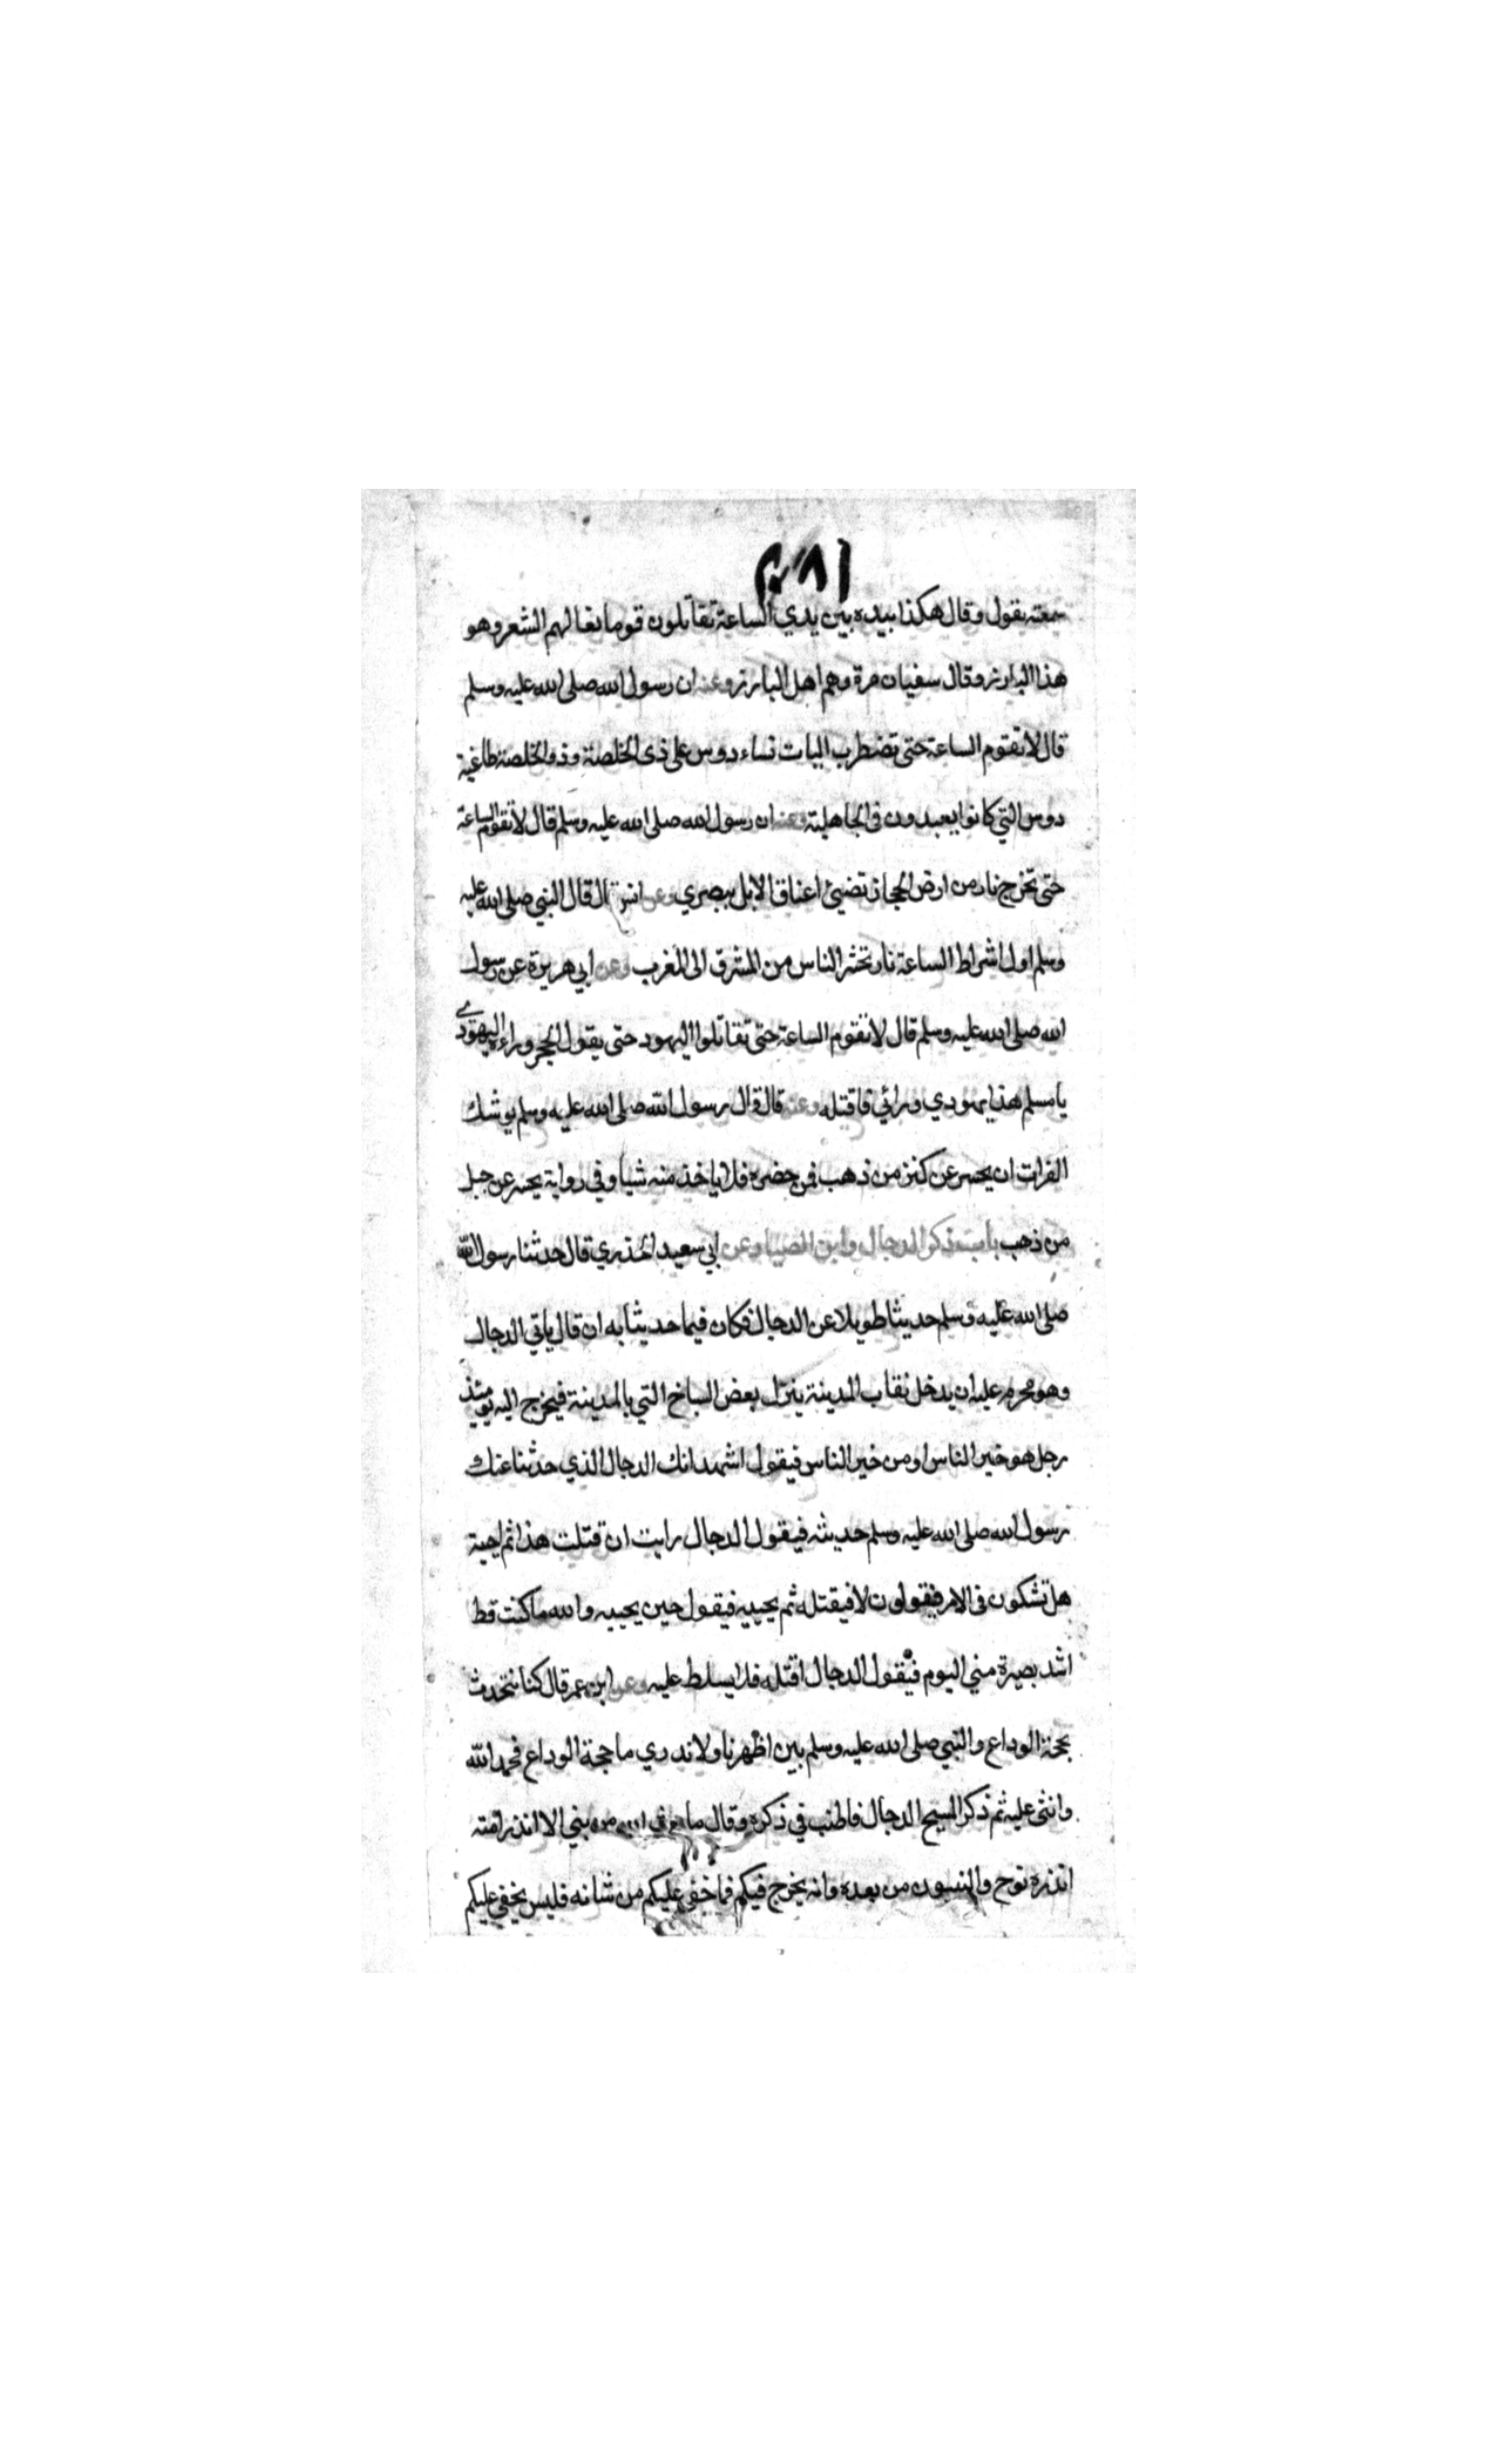 ٢٨١
سمعته يقول وقال هكذا بيده بين يدي الساعة تقاتلون قوما نعالهم الشعر وهو
هذا البارز وقال سفيان مرة وهم اهل البارز وعنه ان رسول الله صلى الله عليه وسلم
قال لا تقوم الساعة حتى تضطرب اليات نساء دوس على ذى الخلصة وذو الخلصة طاغية
دوس التي كانوا يعبدون فى الجاهلية وعنه ان رسول الله صلى الله عليه وسلم قال لا تقوم الساعة
حتى تخرج نار من ارض الحجاز تضيئ اعناق الابل ببصري وعن انس قال قال النبي صلى الله عليه
وسلم اول اشراط الساعة نار تحشر الناس من المشرق الى المغرب وعن ابي هريرة عن رسول
الله صلى الله عليه وسلم قال لا تقوم الساعة حتى تقاتلوا اليهود حتى يقول الحجر وراءه اليهودي
يا مسلم هذا يهودي ورائي فاقتله وعنه قال قال رسول الله صلى الله عليه وسلم يوشك
الفرات ان يحسر عن كنز من ذهب فمن حضره فلا ياخذ منه شيا وفي رواية يحسر عن جبل
من ذهب باب ذكر الدجال وابن الصياد عن ابي سعيد الخدري قال حدثنا رسول الله
صلى الله عليه وسلم حديثا طويلا عن الدجال فكان فيما حديثا به ان قال ياتي الدجال
وهو محرم عليه ان يدخل نقاب المدينة ينزل بعض السباخ التي بالمدينة فيخرج اليه يومئذ
رجل هو خير الناس او من خير الناس فيقول اشهد انك الدجال الذي حدثنا عنك
رسول الله صلى الله عليه وسلم حديثه فيقول الدجال رايت ان قتلت هذا ثم احيية
هل تشكون فى الامر فيقولون لا فيقتله ثم يحييه فيقول حين يحييه والله ما كنت قط
اشد بصيرة مني اليوم فيقول الدجال اقتله فلا يسلط عليه وعن ابن عمر قال كنا نتحدث
بحجة الوداع والنبي صلى الله عليه وسلم بين اظهرنا ولا ندري ما حجة الوداع فحمد الله
واثنى عليه ثم ذكر المسيح الدجال فاطنب في ذكره وقال ما من نبي الا انذر امته
انذره نوح والنبيون من بعده وانه يخرج فيكم فما خفي عليكم من شانه فليس يخفي عليكم